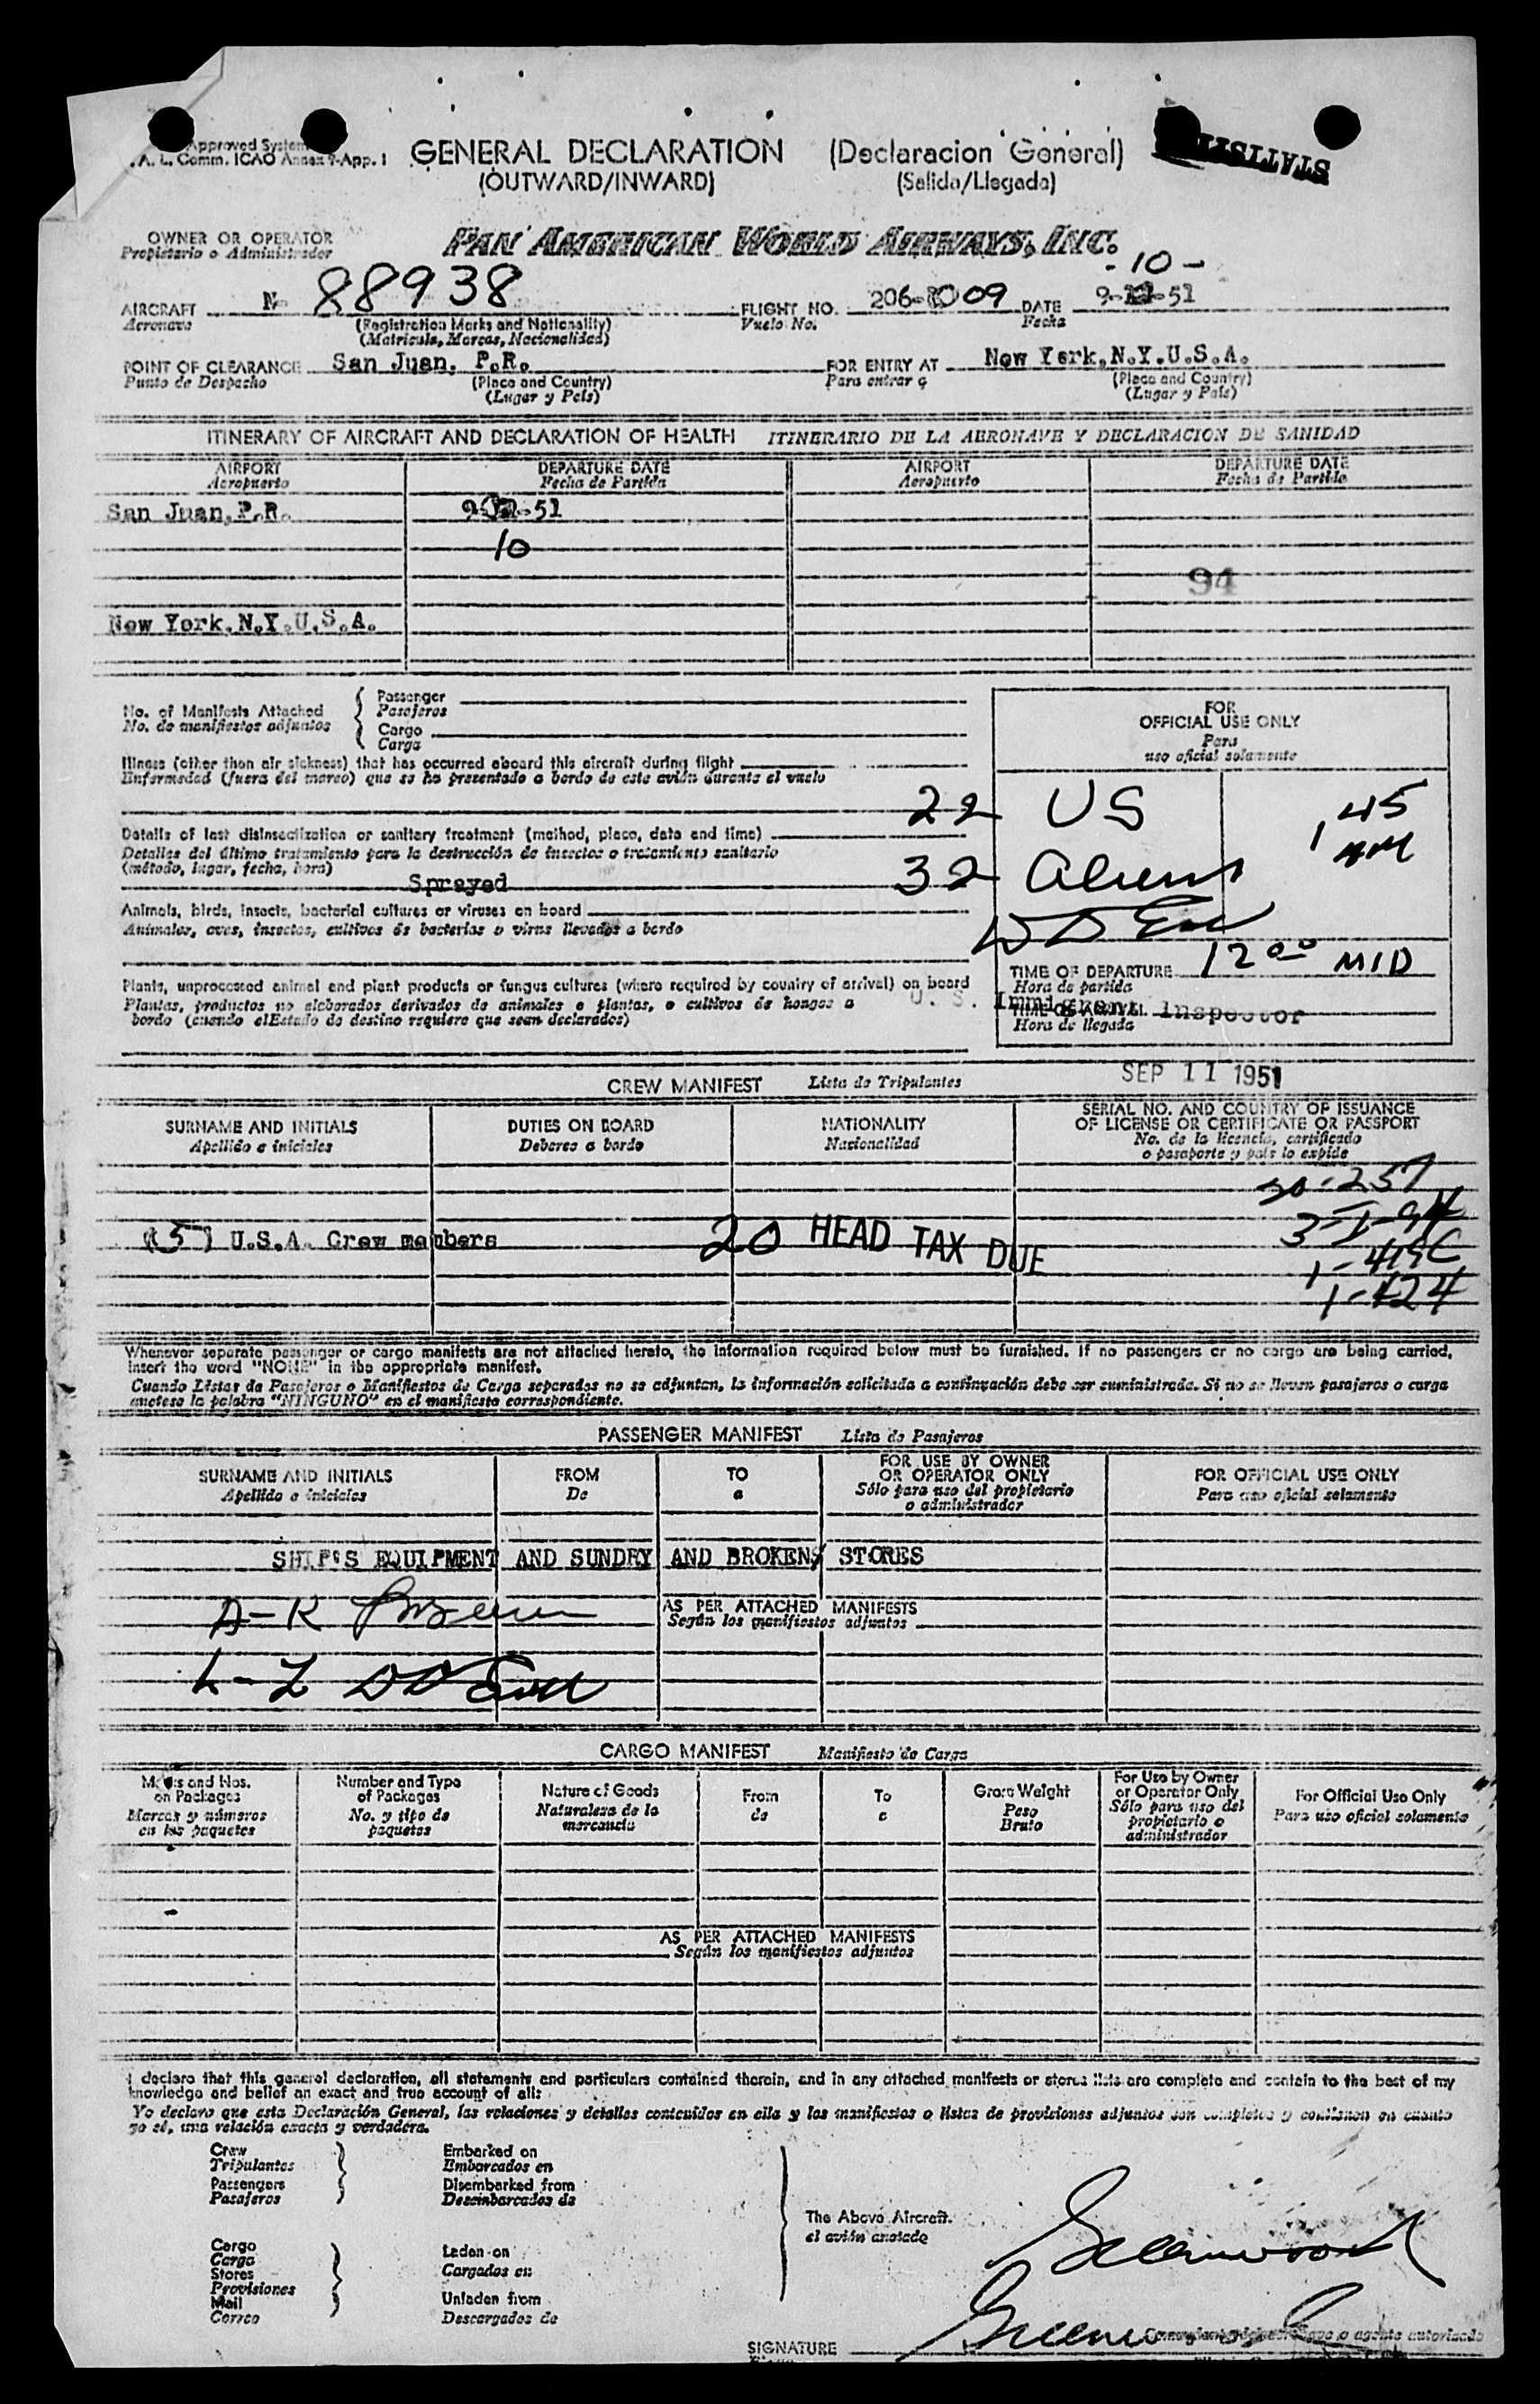 Approved System
A. L. Comm. ICAO Annex 9-App. 1
GENERAL DECLARATION (Declaracion General)
(OUTWARD/INWARD) (Salida/Llegada)
STATISTI
OWNER OR OPERATOR
Propietario o Administrador
PAN AMERICAN WORLD AIRWAYS, INC.
-10-
AIRCRAFT N 88938 FLIGHT NO. 206-009 DATE 9- -51
Aeronave (Registration Marks and Nationality) Vuelo No. Fecha
(Matricula, Marcas, Nacionalidad)
POINT OF CLEARANCE San Juan, P.R. FOR ENTRY AT New York,N.Y.U.S.A.
Punto de Despacho (Place and Country) Para entrar a (Place and Country)
(Lugar y País) (Lugar y País)
ITINERARY OF AIRCRAFT AND DECLARATION OF HEALTH ITINERARIO DE LA AERONAVE Y DECLARACION DE SANIDAD
AIRPORT DEPARTURE DATE AIRPORT DEPARTURE DATE
Aeropuerto Fecha de Partida Aeropuerto Fecha de Partida
San Juan,P.R. 9- -51
10
94
New York,N.Y.U.S.A.
No. of Manifests Attached
No. de manifiestos adjuntos
Passenger
Pasajeros
Cargo
Carga
FOR
OFFICIAL USE ONLY
Para
uso oficial solamente
Illness (other than air sickness) that has occurred aboard this aircraft during flight
Enfermedad (fuera del mareo) que se ha presentado a bordo de este avión durante el vuelo
22 US 1 45 AM
Details of last disinsectization or sanitary treatment (method, place, date and time)
Detalles del último tratamiento para la destrucción de insectos o tratamiento sanitario
(método, lugar, fecha, hora)
Sprayed
32 Aliens
Animals, birds, insects, bacterial cultures or viruses on board
Animales, aves, insectos, cultivos de bacterias o virus llevados a bordo
TIME OF DEPARTURE 12 00 MID
Hora de partida
Plants, unprocessed animal and plant products or fungus cultures (where required by country of arrival) on board
Plantas, productos no elaborados derivados de animales o plantas, o cultivos de hongos a
bordo (cuando el Estado de destino requiere que sean declarados)
U. S. Immigrant Inspector
TIME OF ARRIVAL
Hora de llegada
SEP 11 1951
CREW MANIFEST Lista de Tripulantes
SURNAME AND INITIALS DUTIES ON BOARD NATIONALITY SERIAL NO. AND COUNTRY OF ISSUANCE
OF LICENSE OR CERTIFICATE OR PASSPORT
Apellido e iniciales Deberes a bordo Nacionalidad No. de la licencia, certificado
o pasaporte y país lo expide
20-257
3-I-94
(5) U.S.A. Crew members 20 HEAD TAX DUE
1-419C
1-424
Whenever separate passenger or cargo manifests are not attached hereto, the information required below must be furnished. If no passengers or no cargo are being carried,
insert the word "NONE" in the appropriate manifest.
Cuando Listas de Pasajeros o Manifiestos de Carga separados no se adjuntan, la información solicitada a continuación debe ser suministrada. Si no se llevan pasajeros o carga
anotese la palabra "NINGUNO" en el manifiesto correspondiente.
PASSENGER MANIFEST Lista de Pasajeros
SURNAME AND INITIALS FROM TO FOR USE BY OWNER
OR OPERATOR ONLY FOR OFFICIAL USE ONLY
Apellido e iniciales De a Sólo para uso del propietario
o administrador Para uso oficial solamente
SHIP'S EQUIPMENT AND SUNDRY AND BROKEN STORES
A-K
AS PER ATTACHED MANIFESTS
Según los manifiestos adjuntos
L-Z
CARGO MANIFEST Manifiesto de Carga
Marks and Nos.
on Packages
Marcas y números
en los paquetes
Number and Type
of Packages
No. y tipo de
paquetes
Nature of Goods
Naturaleza de la
mercancía
From
de
To
a
Gross Weight
Peso
Bruto
For Use by Owner
or Operator Only
Sólo para uso del
propietario o
administrador
For Official Use Only
Para uso oficial solamente
AS PER ATTACHED MANIFESTS
Según los manifiestos adjuntos
I declare that this general declaration, all statements and particulars contained therein, and in any attached manifests or stores lists are complete and contain to the best of my
knowledge and belief an exact and true account of all:
Yo declaro que esta Declaración General, las relaciones y detalles contenidos en ella y los manifiestos o listas de provisiones adjuntos son completos y contienen en cuanto
yo sé, una relación exacta y verdadera.
Crew
Tripulantes
Passengers
Pasajeros
Embarked on
Embarcados en
Disembarked from
Desembarcados de
The Above Aircraft.
el avión anotado
Cargo
Carga
Stores
Provisiones
Mail
Correo
Laden on
Cargados en
Unladen from
Descargados de
Greenwood
Greenwood
SIGNATURE
o agente autorizado